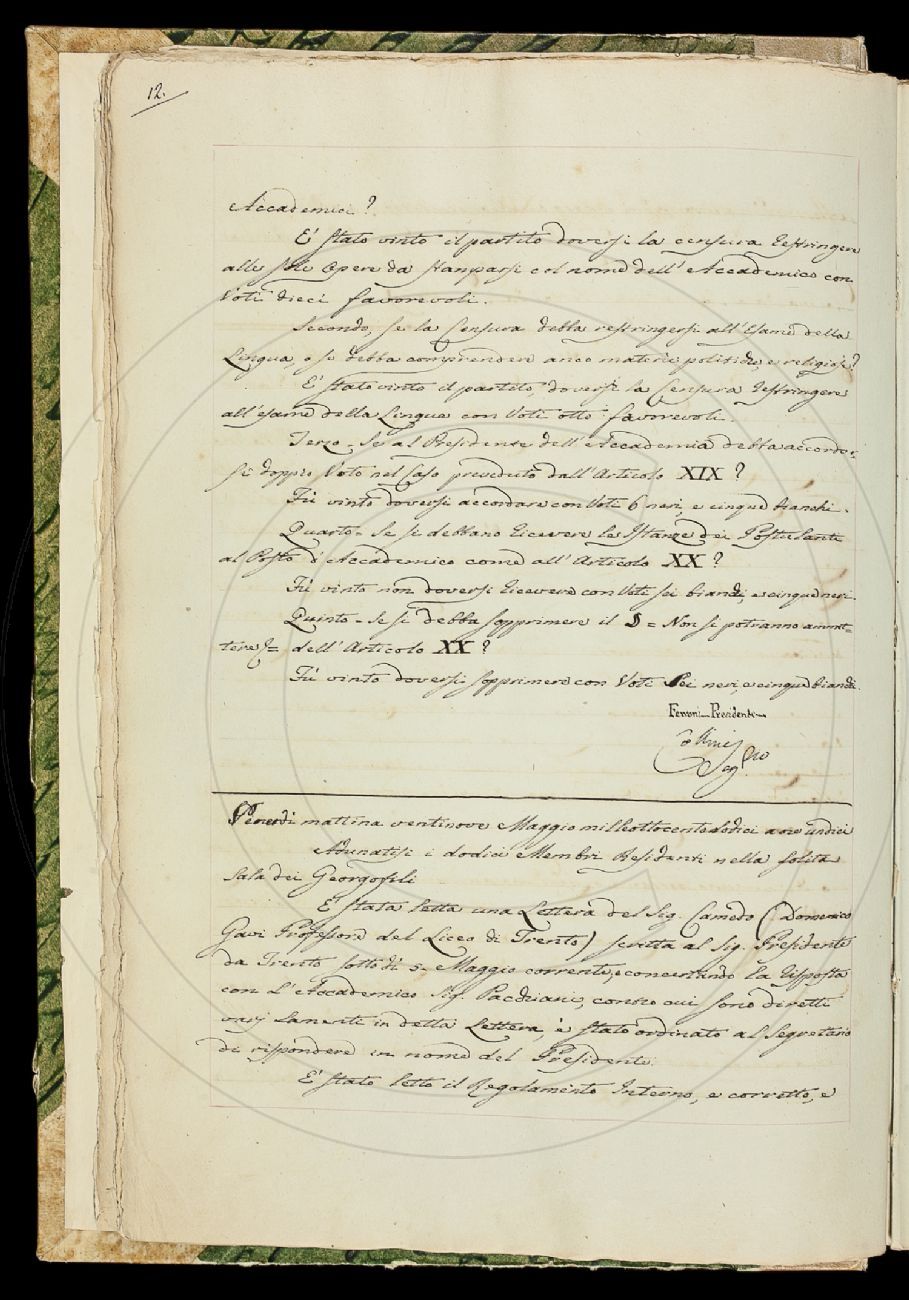 12.
Accademici?
E' stato vinto il partito doversi la censura restringere
alle sole Opere da stamparsi col nome dell'Accademico con
Voti dieci favorevoli.
Secondo, se la Censura debba restringersi all'Esame della
Lingua, o se debba comprendere anco materie politiche, e religiose?
E' stato vinto il partito, doversi la Censura restringere
all'esame della Lingua con Voti otto favorevoli.
Terzo - Se al Presidente dell'Accademia debba accordar-
si doppio Voto nel Caso preveduto dall'Articolo XIX?
Fù vinto doversi accordare con Voti 6 neri, e cinque bianchi.
Quarto - Se si debbano ricevere le Istanze dei Postulanti
al Posto d'Accademico come all'Articolo XX?
Fù vinto non doversi ricevere con Voti sei bianchi, e cinque neri.
Quinto - Se si debba sopprimere il § = Non si potranno ammet=
tere &= dell'Articolo XX?
Fù vinto doversi sopprimere con Voti Sei neri, e cinque bianchi.
Ferroni Presidente
Collini
Seg.rio
Venerdì mattina ventinove Maggio milleottocentododici a ore undici
Adunatisi i dodici Membri Residenti nella solita
Sala dei Georgofili
E' stata letta una Lettera del Sig. (Domenico
Gavi Professore del Liceo di Trento) scritta al Sig. Presidente
da Trento sotto dì 5. Maggio corrente, e concernendo la risposta
con L'Accademico Sig. contro cui sono diretti
varj lamenti in detta Lettera, è stato ordinato al Segretario
di rispondere in nome del Presidente.
E' stato letto il Regolamento Interno, e corretto, e